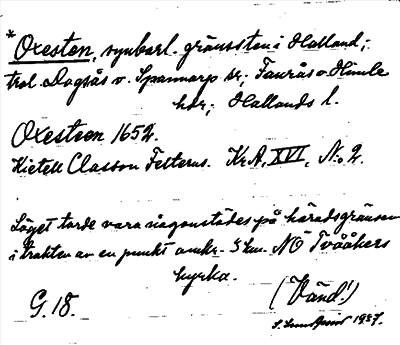 * Oxesten, synbarl. gränssten i Halland;
trol. Dagsås o. Spannarp sr; Faurås o. Himle
hdr; Hallands l.
Oxesteen 1652.
Kietell Classon Felterus. KrA, XVI, No 2.
Läget torde vara någonstädes på häradsgränsen
i trakten av en punkt omkr. 5 km. NÖ Tvååkers
kyrka.
G. 18.
(Vänd!)
1937.